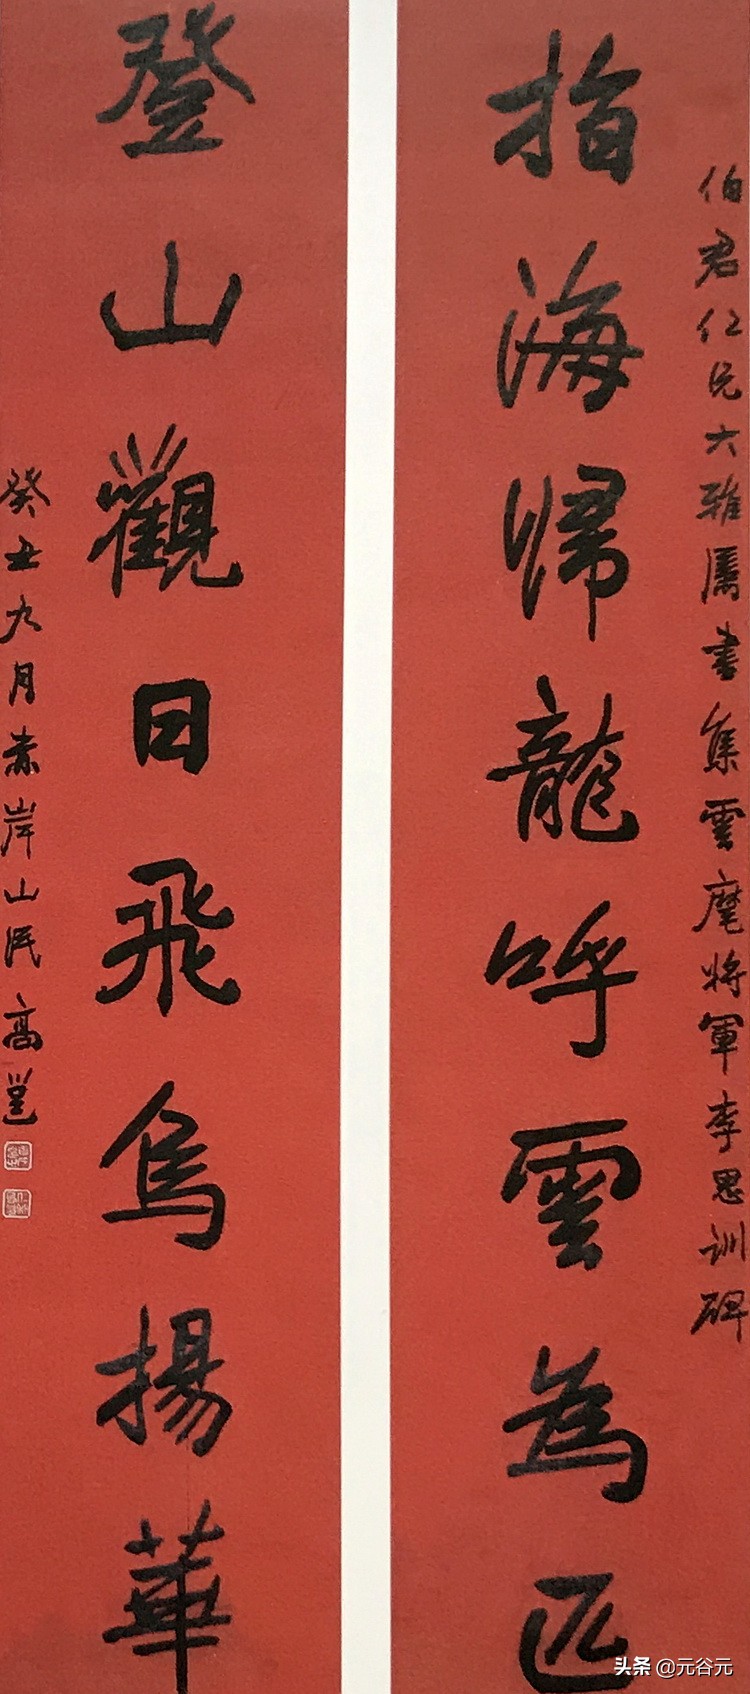 伯君仁兄大雅屬書集雲麾將軍李思訓碑
指海歸龍呼雲為匹
登山觀日飛烏揚華
癸丑九月赤岸山民高邕
头条 @元谷元